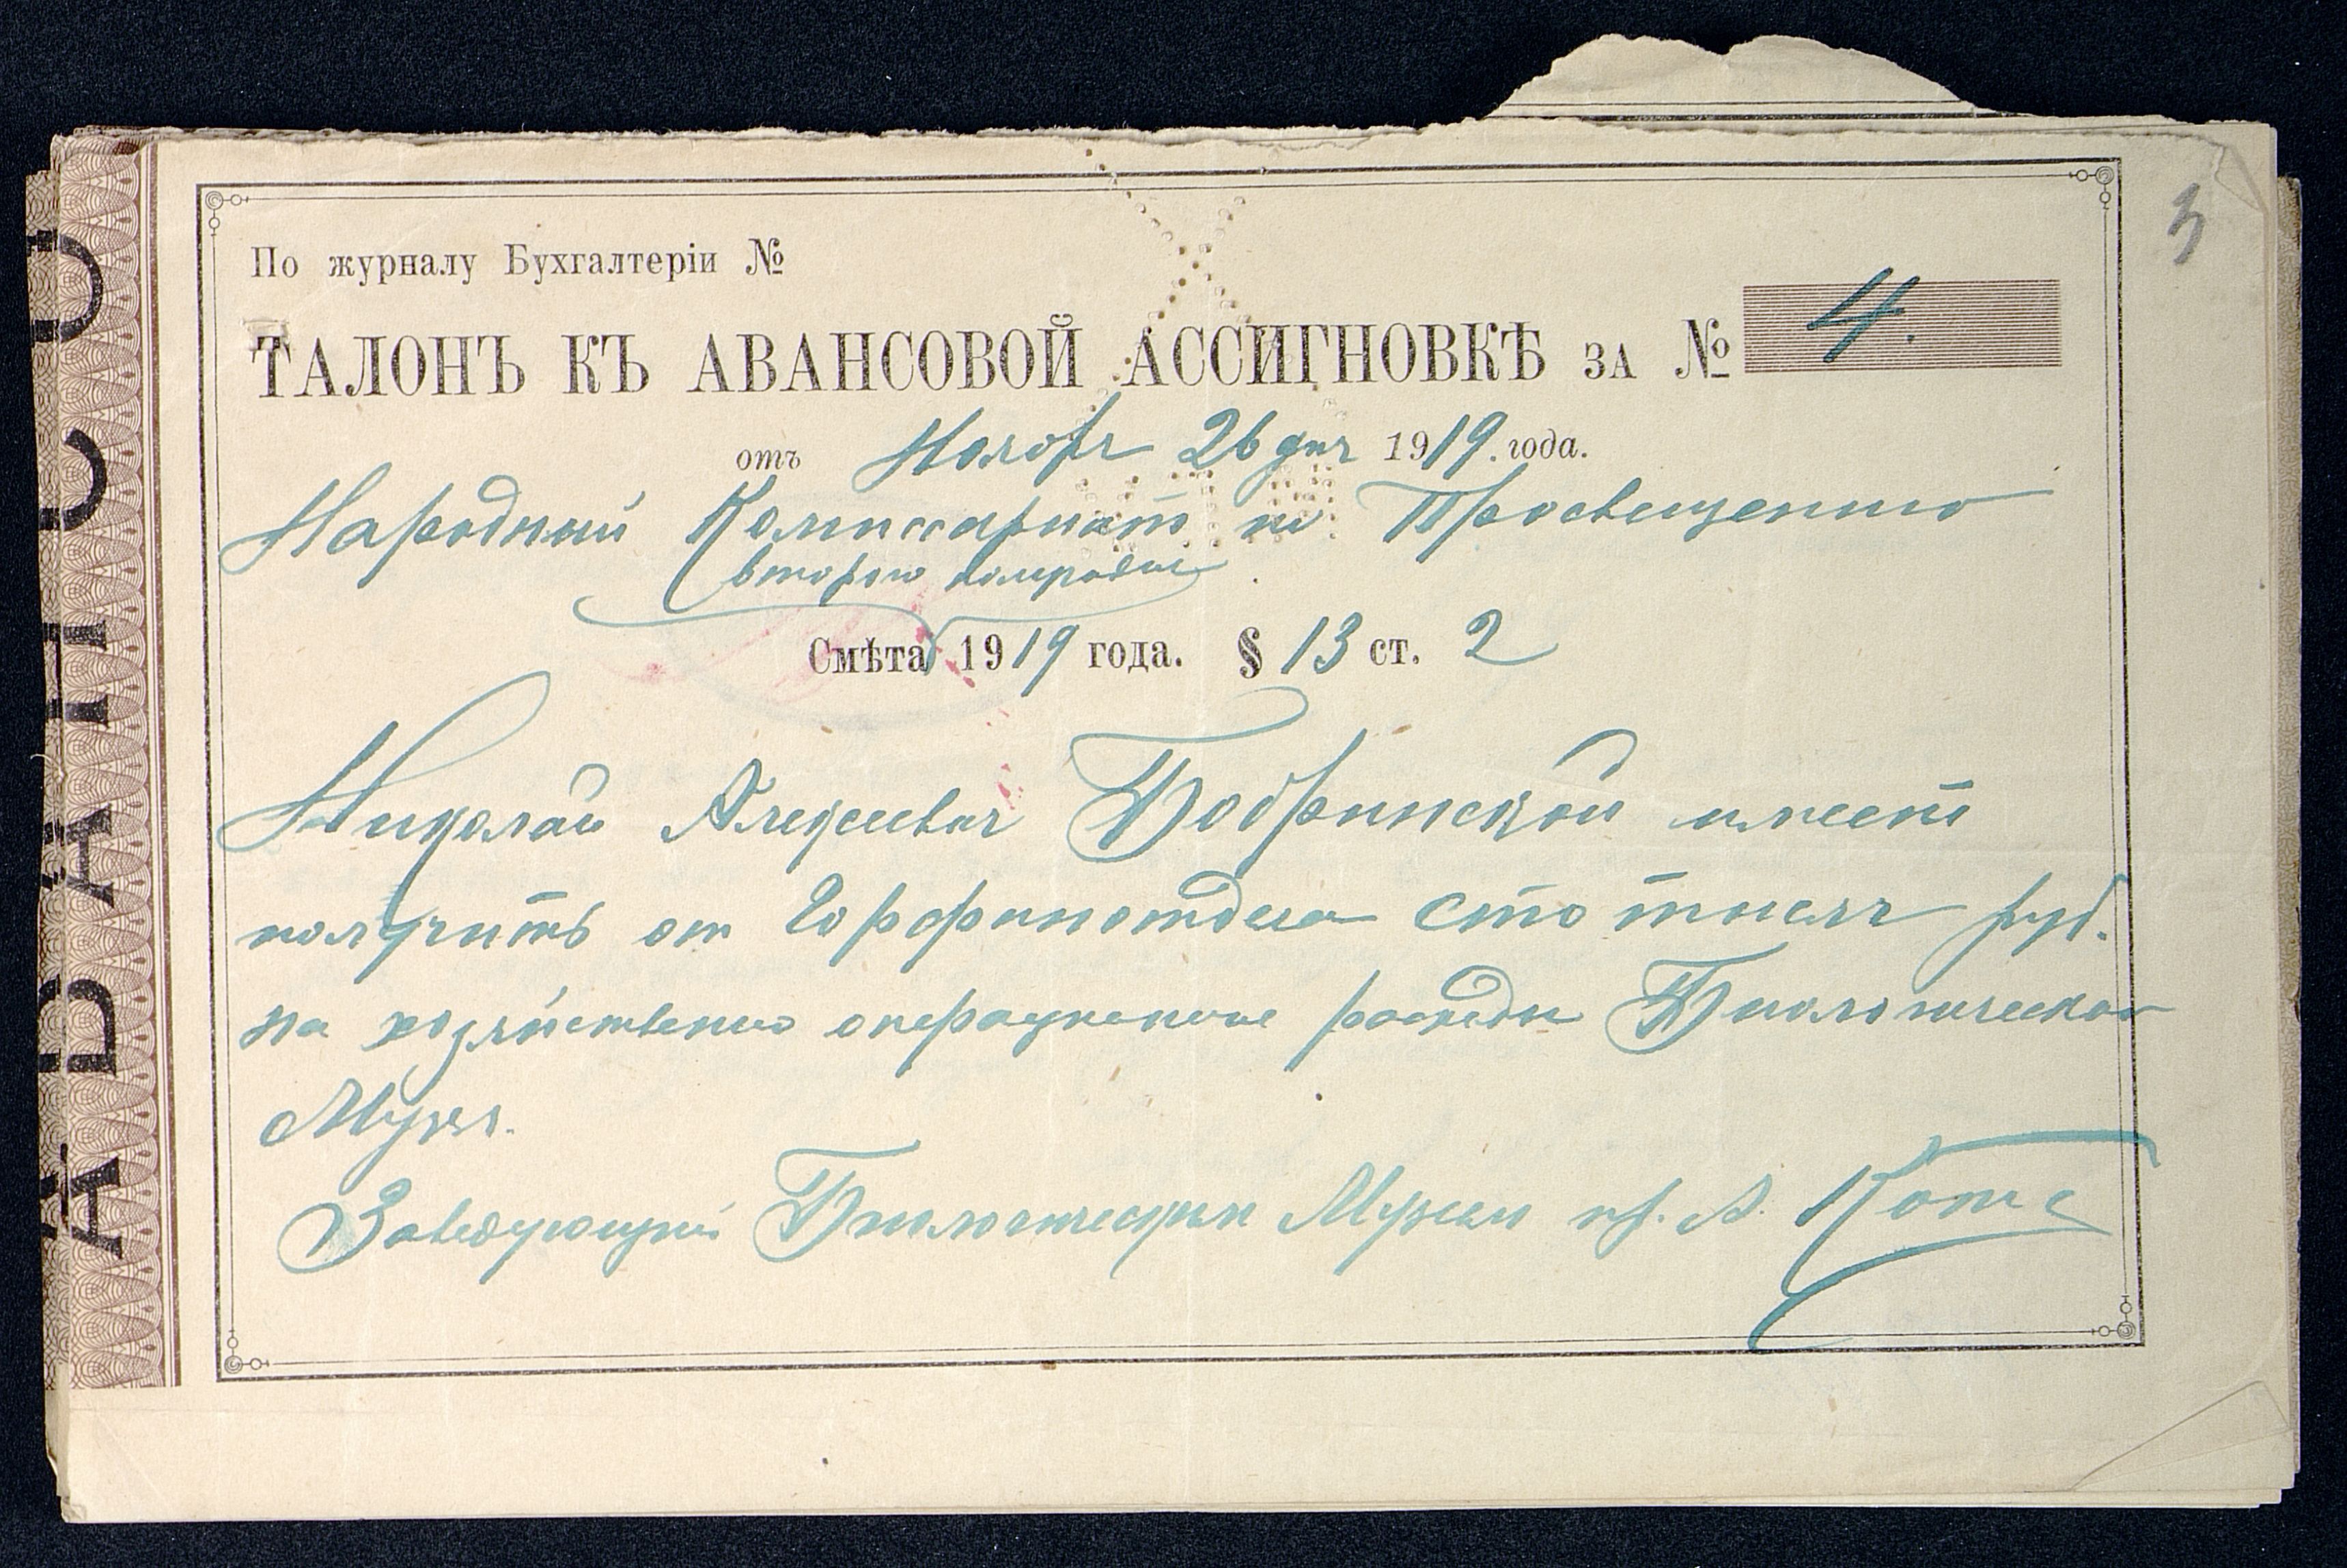 3
По журналу Бухгалтеріи №
ТАЛОНЪ КЪ АВАНСОВОЙ АССИГНОВКѢ ЗА № 4.
отъ Ноября 26 дня 1919. года.
Народный Комиссариат по Просвещению
второго полугодия
Смѣта 1919 года. § 13 ст. 2
Николай Алексеевич Бобринской имеет
получить от Горфинотдела сто тысяч руб.
на хозяйственно операционные расходы Биологического
Музея.
Заведующий Биологическим Музеем пр. А. Котс